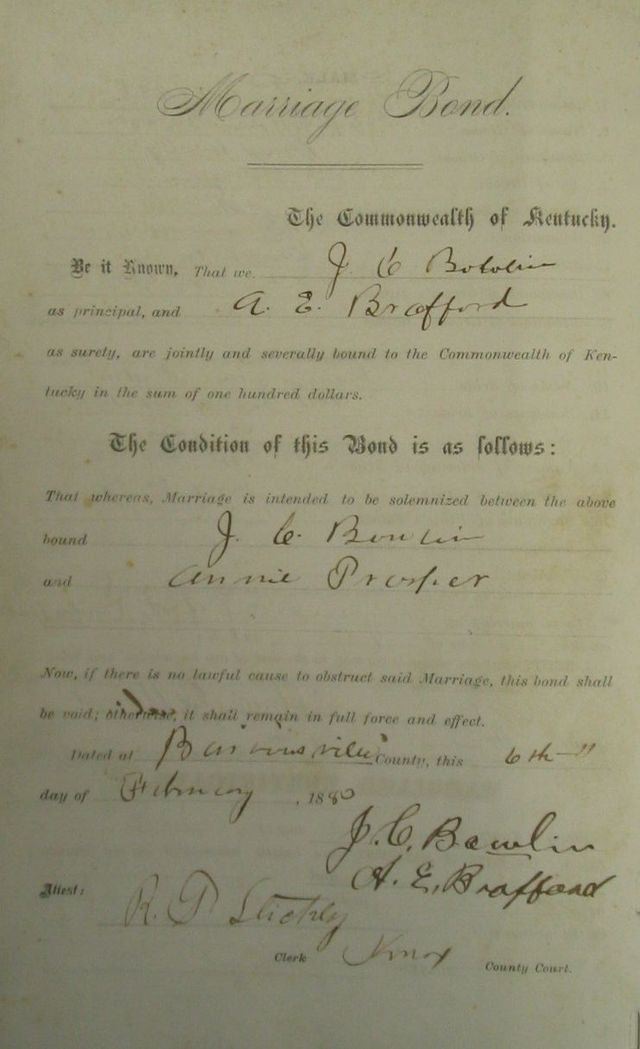 Marriage Bond.
The Commonwealth of Kentucky.
Be it Known, That we, J C Bowlin
as principal, and A. E. Brafford
as surety, are jointly and severally bound to the Commonwealth of Ken-
tucky in the sum of one hundred dollars.
The Condition of this Bond is as follows:
That whereas, Marriage is intended to be solemnized between the above
bound J. C. Bowlin
and Annie Prosper
Now, if there is no lawful cause to obstruct said Marriage, this bond shall
be void; otherwise, it shall remain in full force and effect.
Dated at Barbourville County, this 6th
day of February, 1880
J. C. Bowlin
A. E. Brafford
Attest: R. P.
Clerk Knox County Court.